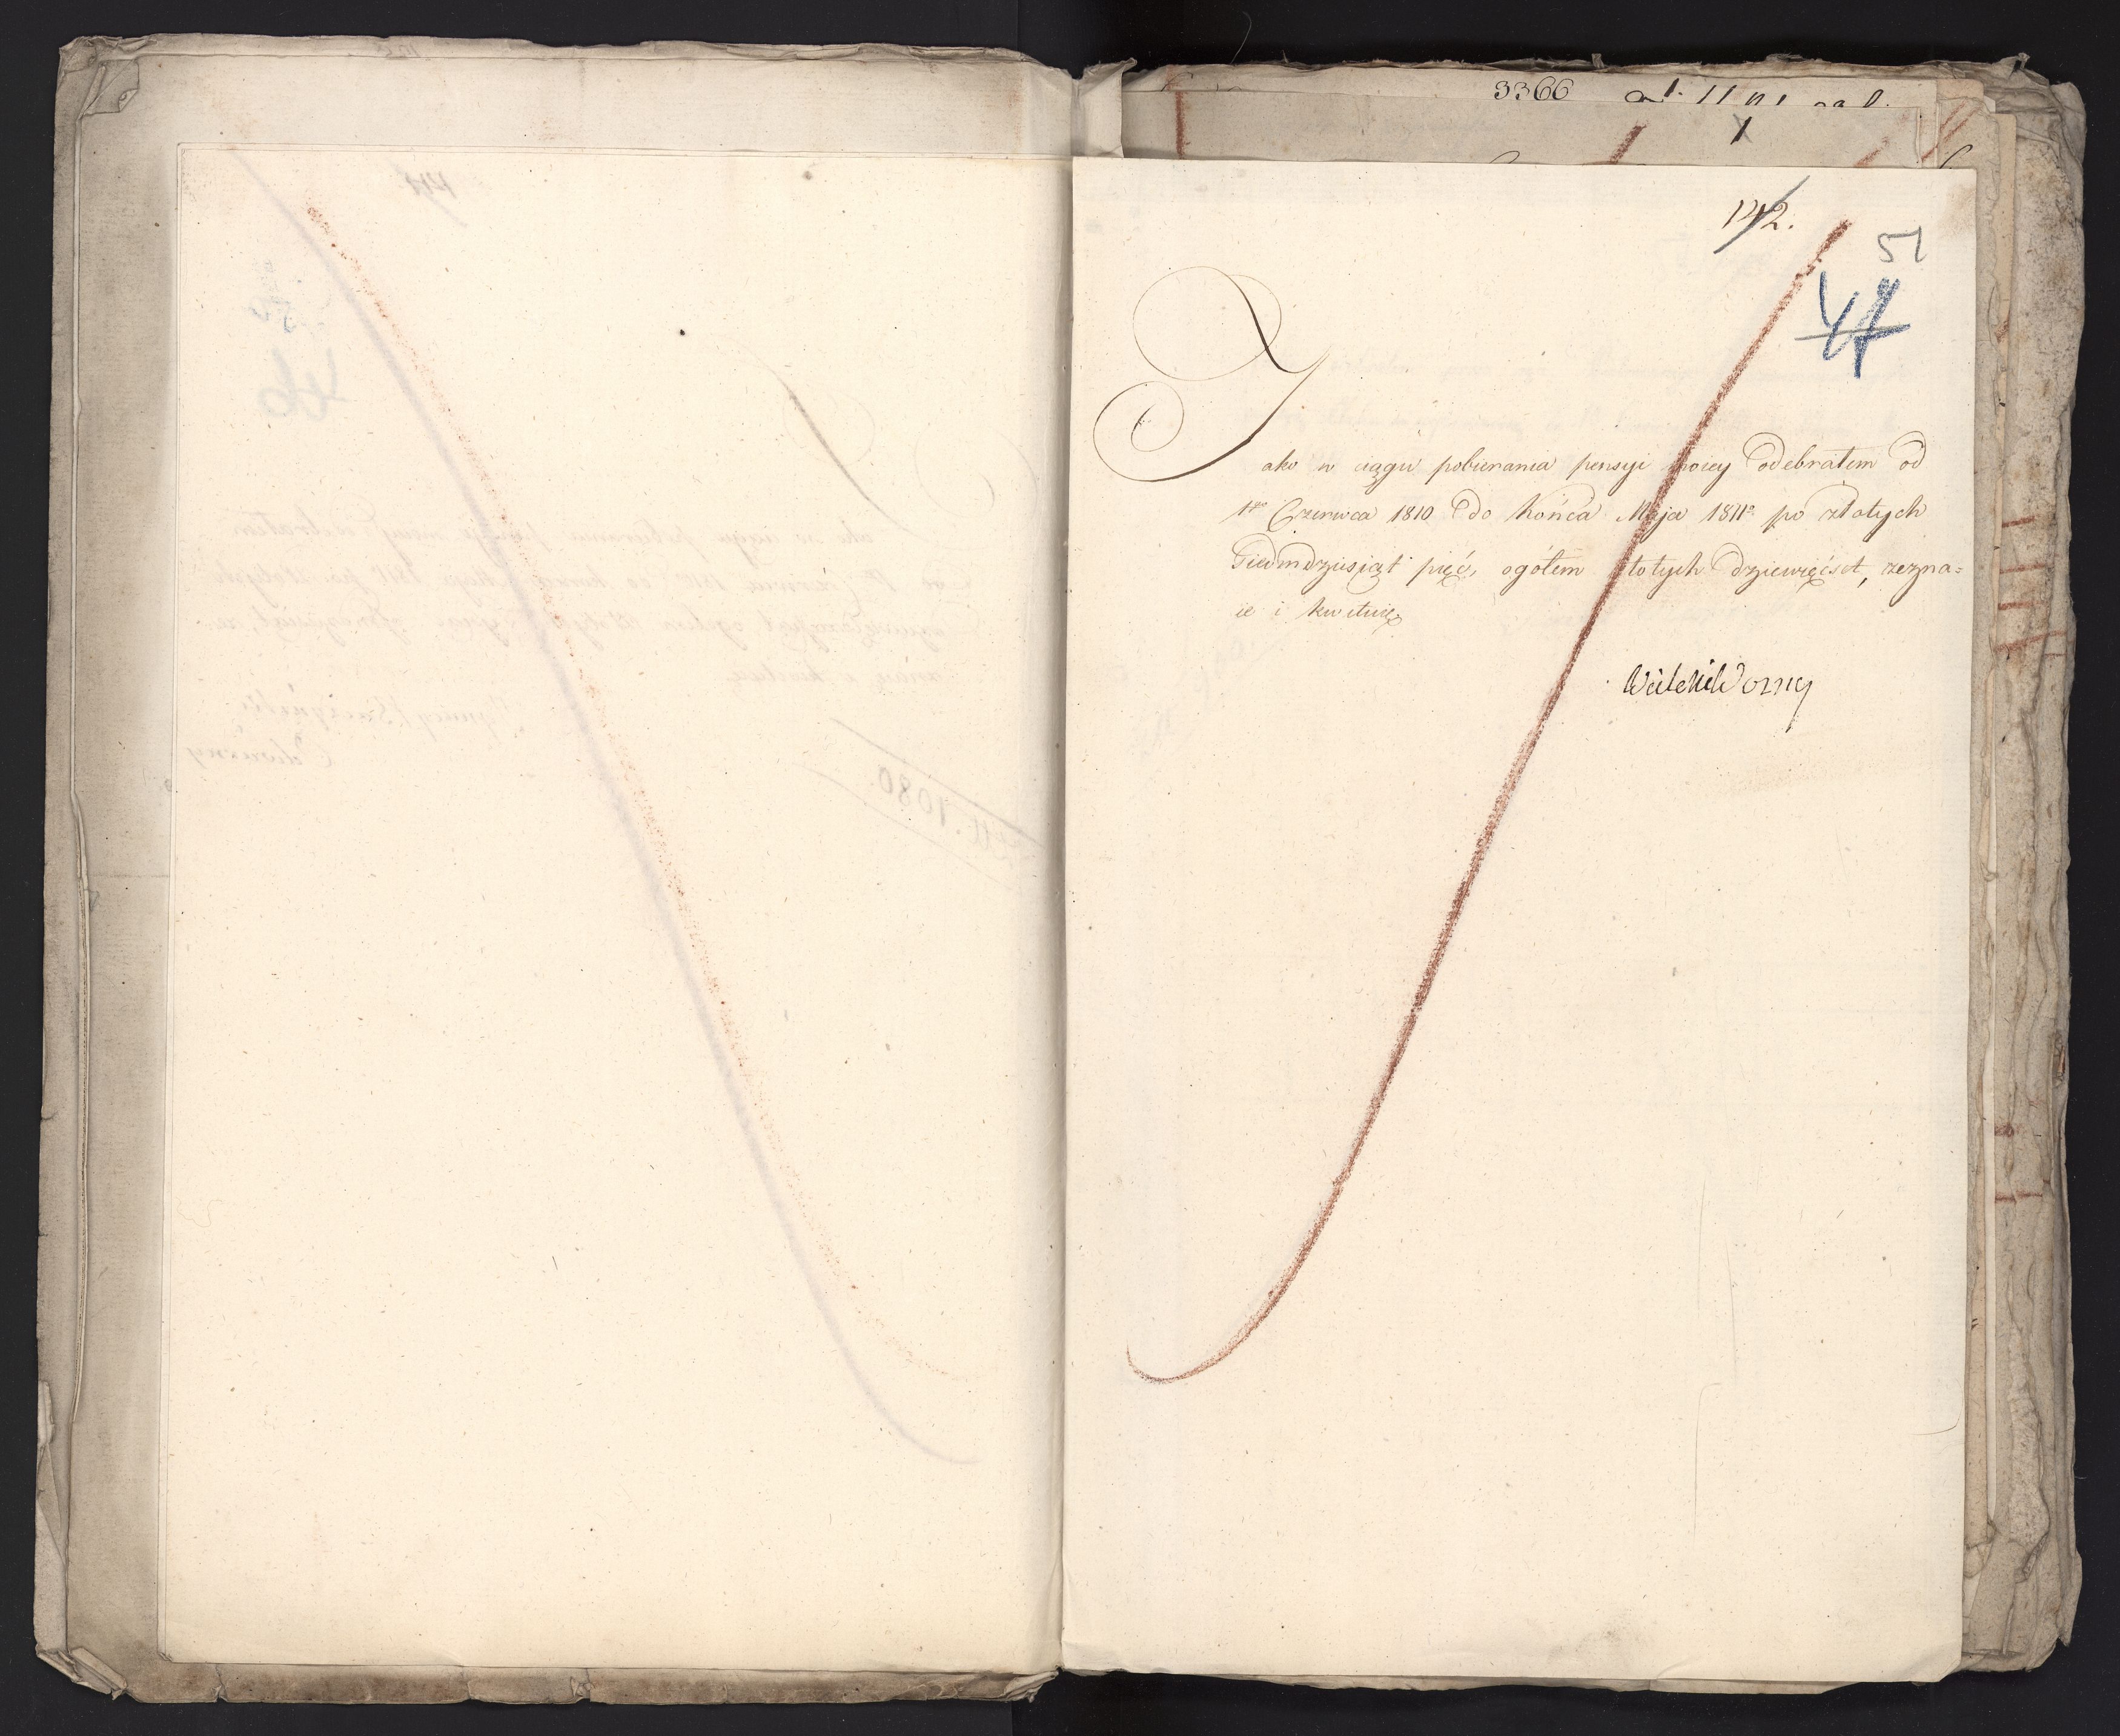 3366
142.
51
47
Jako w ciągu pobierania pensyi moiey Odebrałem od
1go Czerwca 1810 do końca Maja 1811o po złotych
Siedmdziesiąt pięć, ogółem złotych dziewięćset, zezna=
ie i kwituię
Woźny